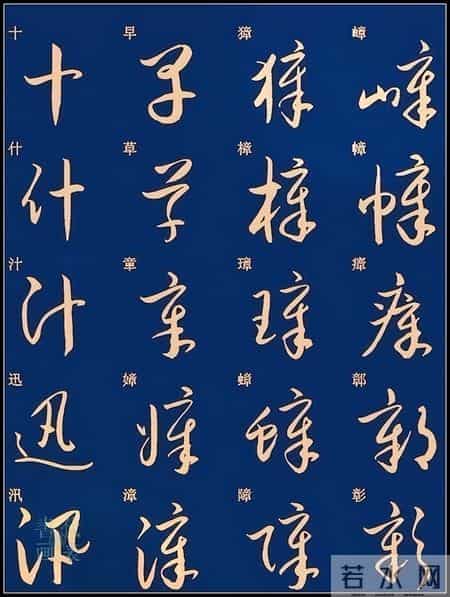 十 早 獐 嶂
十 早 獐 嶂
什 草 樟 幛
什 草 樟 幛
汁 章 璋 瘴
汁 章 璋 瘴
迅 嫜 蟑 鄣
迅 嫜 蟑 鄣
汛 漳 障 彰
汛 漳 障 彰
若水网